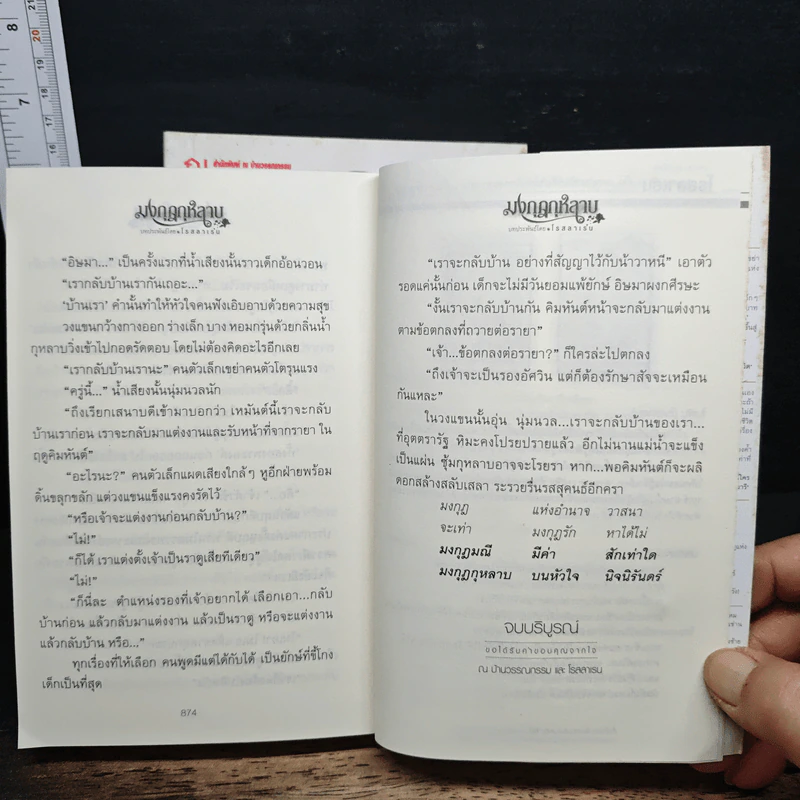 8
20
19
7
18
17
มงกุฎกุหลาบ
บทประพันธ์โดย โรสลาเรน
“อิษมา...” เป็นครั้งแรกที่น้ำเสียงนั้นราวเด็กอ้อนวอน
“เรากลับบ้านเรากันเถอะ...”
‘บ้านเรา’ คำนั้นทำให้หัวใจคนฟังเอิบอาบด้วยความสุข
วงแขนกว้างกางออก ร่างเล็ก บาง หอมกรุ่นด้วยกลิ่นน้ำ
กุหลาบวิ่งเข้าไปกอดรัดตอบ โดยไม่ต้องคิดอะไรอีกเลย
“เรากลับบ้านเรานะ” คนตัวเล็กเขย่าคนตัวโตรุนแรง
“ครู่นี้...” น้ำเสียงนั้นนุ่มนวลนัก
“ถึงเรียกเสนาบดีเข้ามาบอกว่า เหมันต์นี้เราจะกลับ
บ้านเราก่อน เราจะกลับมาแต่งงานและรับหน้าที่จากรายา ใน
ฤดูคิมหันต์”
“อะไรนะ?” คนตัวเล็กแผดเสียงใกล้ๆ หูอีกฝ่ายพร้อม
ดิ้นขลุกขลัก แต่วงแขนแข็งแรงคงรัดไว้
“หรือเจ้าจะแต่งงานก่อนกลับบ้าน?”
“ไม่!”
“ก็ได้ เราแต่งตั้งเจ้าเป็นราตูเสียทีเดียว”
“ไม่!”
“ก็นี่ละ ตำแหน่งรองที่เจ้าอยากได้ เลือกเอา...กลับ
บ้านก่อน แล้วกลับมาแต่งงาน แล้วเป็นราตู หรือจะแต่งงาน
แล้วกลับบ้าน หรือ...”
ทุกเรื่องที่ให้เลือก คนพูดมีแต่ได้กับได้ เป็นยักษ์ที่ขี้โกง
เด็กเป็นที่สุด
874
มงกุฎกุหลาบ
บทประพันธ์โดย โรสลาเรน
“เราจะกลับบ้าน อย่างที่สัญญาไว้กับน้าวาหนี” เอาตัว
รอดแค่นั้นก่อน เด็กจะไม่มีวันยอมแพ้ยักษ์ อิษมาผงกศีรษะ
“งั้นเราจะกลับบ้านกัน คิมหันต์หน้าจะกลับมาแต่งงาน
ตามข้อตกลงที่ถวายต่อรายา”
“เจ้า...ข้อตกลงต่อรายา?” ก็ใครล่ะไปตกลง
“ถึงเจ้าจะเป็นรองอัศวิน แต่ก็ต้องรักษาสัจจะเหมือน
กันแหละ”
ในวงแขนนั้นอุ่น นุ่มนวล...เราจะกลับบ้านของเรา...
ที่อุตตรารัฐ หิมะคงโปรยปรายแล้ว อีกไม่นานแม่น้ำจะแข็ง
เป็นแผ่น ซุ้มกุหลาบอาจจะโรยรา หาก...พอคิมหันต์ก็จะผลิ
ดอกสล้างสลับเสลา ระรวยรื่นรสสุคนธ์อีกครา
มงกุฎ แห่งอำนาจ วาสนา
จะเท่า มงกุฎรัก หาได้ไม่
มงกุฎมณี มีค่า สักเท่าใด
มงกุฎกุหลาบ บนหัวใจ นิจนิรันดร์
จบบริบูรณ์
ขอได้รับคำขอบคุณจากใจ
ณ บ้านวรรณกรรม และ โรสลาเรน